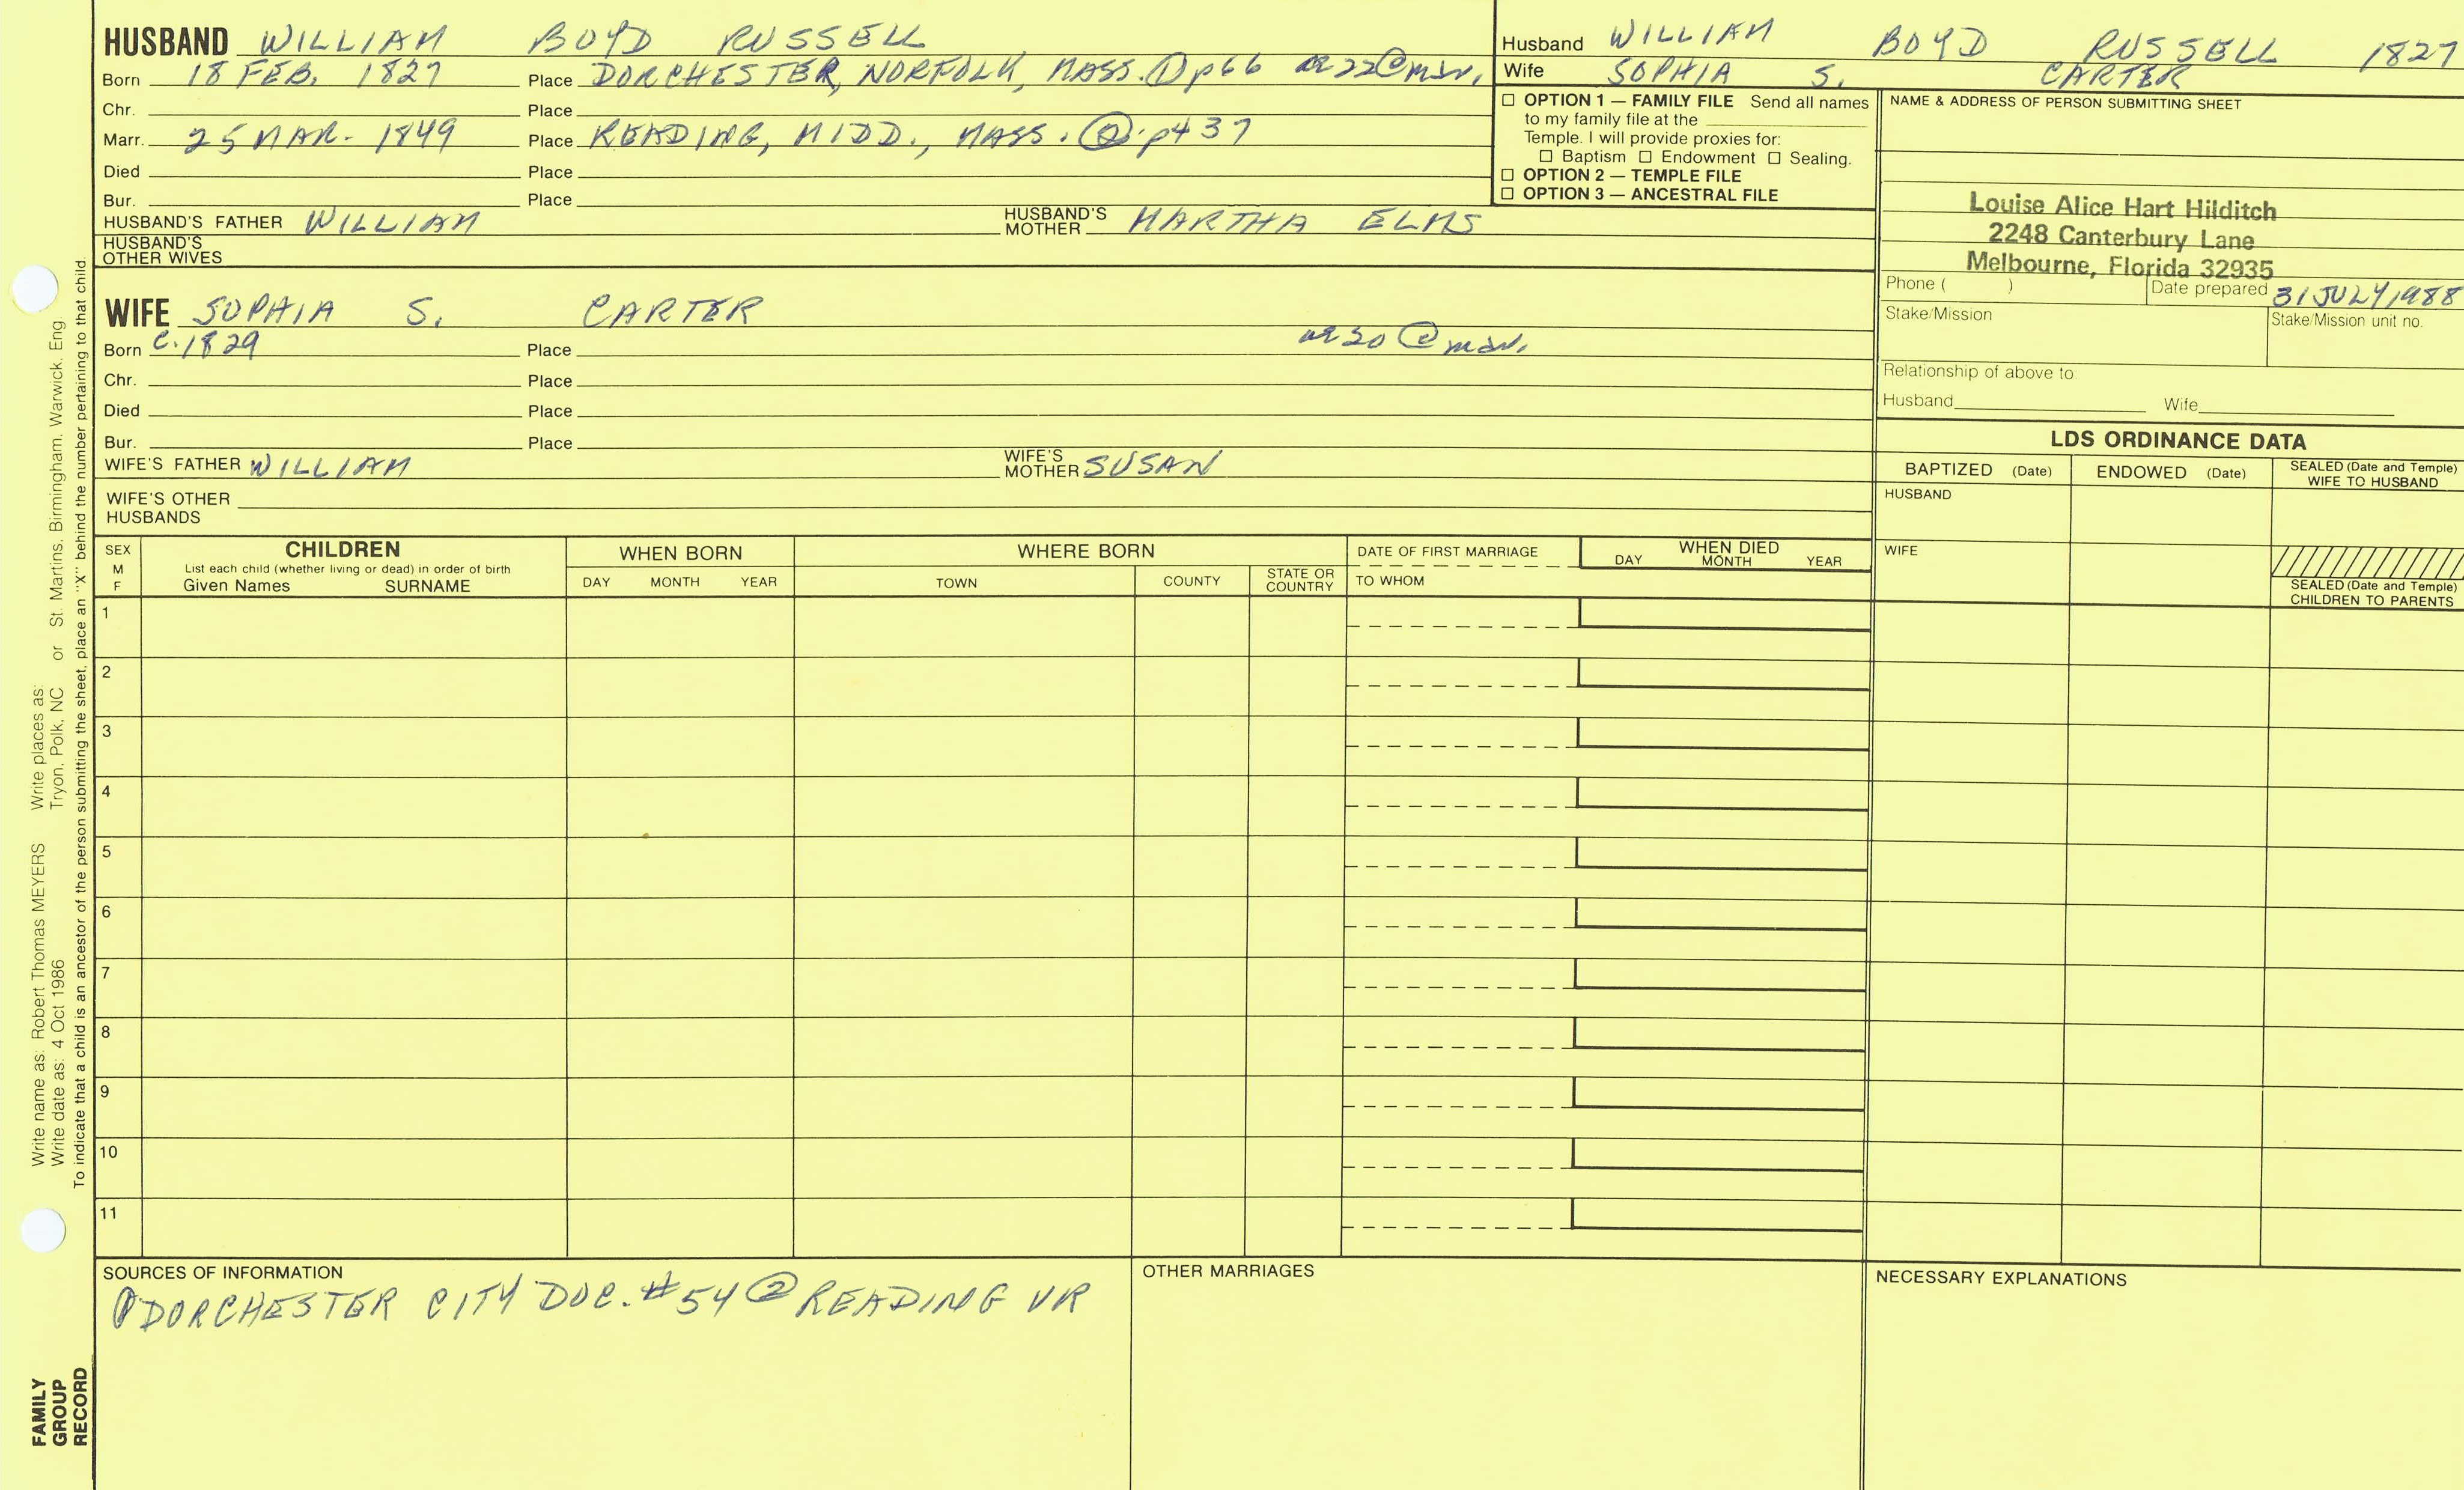 HUSBAND WILLIAM BOYD RUSSELL
Born 18 FEB. 1827 Place DORCHESTER, NORFOLK, MASS. ① p66 ae 22 @ marr.
Chr. Place
Marr. 25 MAR. 1849 Place READING, MIDD., MASS. ② p437
Died Place
Bur. Place
HUSBAND'S FATHER WILLIAM HUSBAND'S MOTHER MARTHA ELMS
HUSBAND'S OTHER WIVES
Husband WILLIAM BOYD RUSSELL 1827
Wife SOPHIA S. CARTER
☐ OPTION 1 — FAMILY FILE Send all names
to my family file at the
Temple. I will provide proxies for:
☐ Baptism ☐ Endowment ☐ Sealing.
☐ OPTION 2 — TEMPLE FILE
☐ OPTION 3 — ANCESTRAL FILE
NAME & ADDRESS OF PERSON SUBMITTING SHEET
Louise Alice Hart Hilditch
2248 Canterbury Lane
Melbourne, Florida 32935
Phone ( ) Date prepared 31 JULY 1988
Stake/Mission Stake/Mission unit no.
Relationship of above to
Husband Wife
WIFE SOPHIA S. CARTER
Born c. 1829 Place ae 20 @ marr.
Chr. Place
Died Place
Bur. Place
WIFE'S FATHER WILLIAM WIFE'S MOTHER SUSAN
WIFE'S OTHER
HUSBANDS
LDS ORDINANCE DATA
BAPTIZED (Date) ENDOWED (Date) SEALED (Date and Temple) WIFE TO HUSBAND
HUSBAND
WIFE
SEALED (Date and Temple)
CHILDREN TO PARENTS
SEX M F
CHILDREN
List each child (whether living or dead) in order of birth
Given Names SURNAME
WHEN BORN
DAY MONTH YEAR
WHERE BORN
TOWN COUNTY STATE OR COUNTRY
DATE OF FIRST MARRIAGE
TO WHOM
WHEN DIED
DAY MONTH YEAR
1
2
3
4
5
6
7
8
9
10
11
SOURCES OF INFORMATION
① DORCHESTER CITY DOC. #54 ② READING VR
OTHER MARRIAGES
NECESSARY EXPLANATIONS
Write name as: Robert Thomas MEYERS Write places as:
Write date as: 4 Oct 1986 Tryon, Polk, NC or St. Martins, Birmingham, Warwick, Eng
To indicate that a child is an ancestor of the person submitting the sheet, place an "X" behind the number pertaining to that child.
FAMILY
GROUP
RECORD